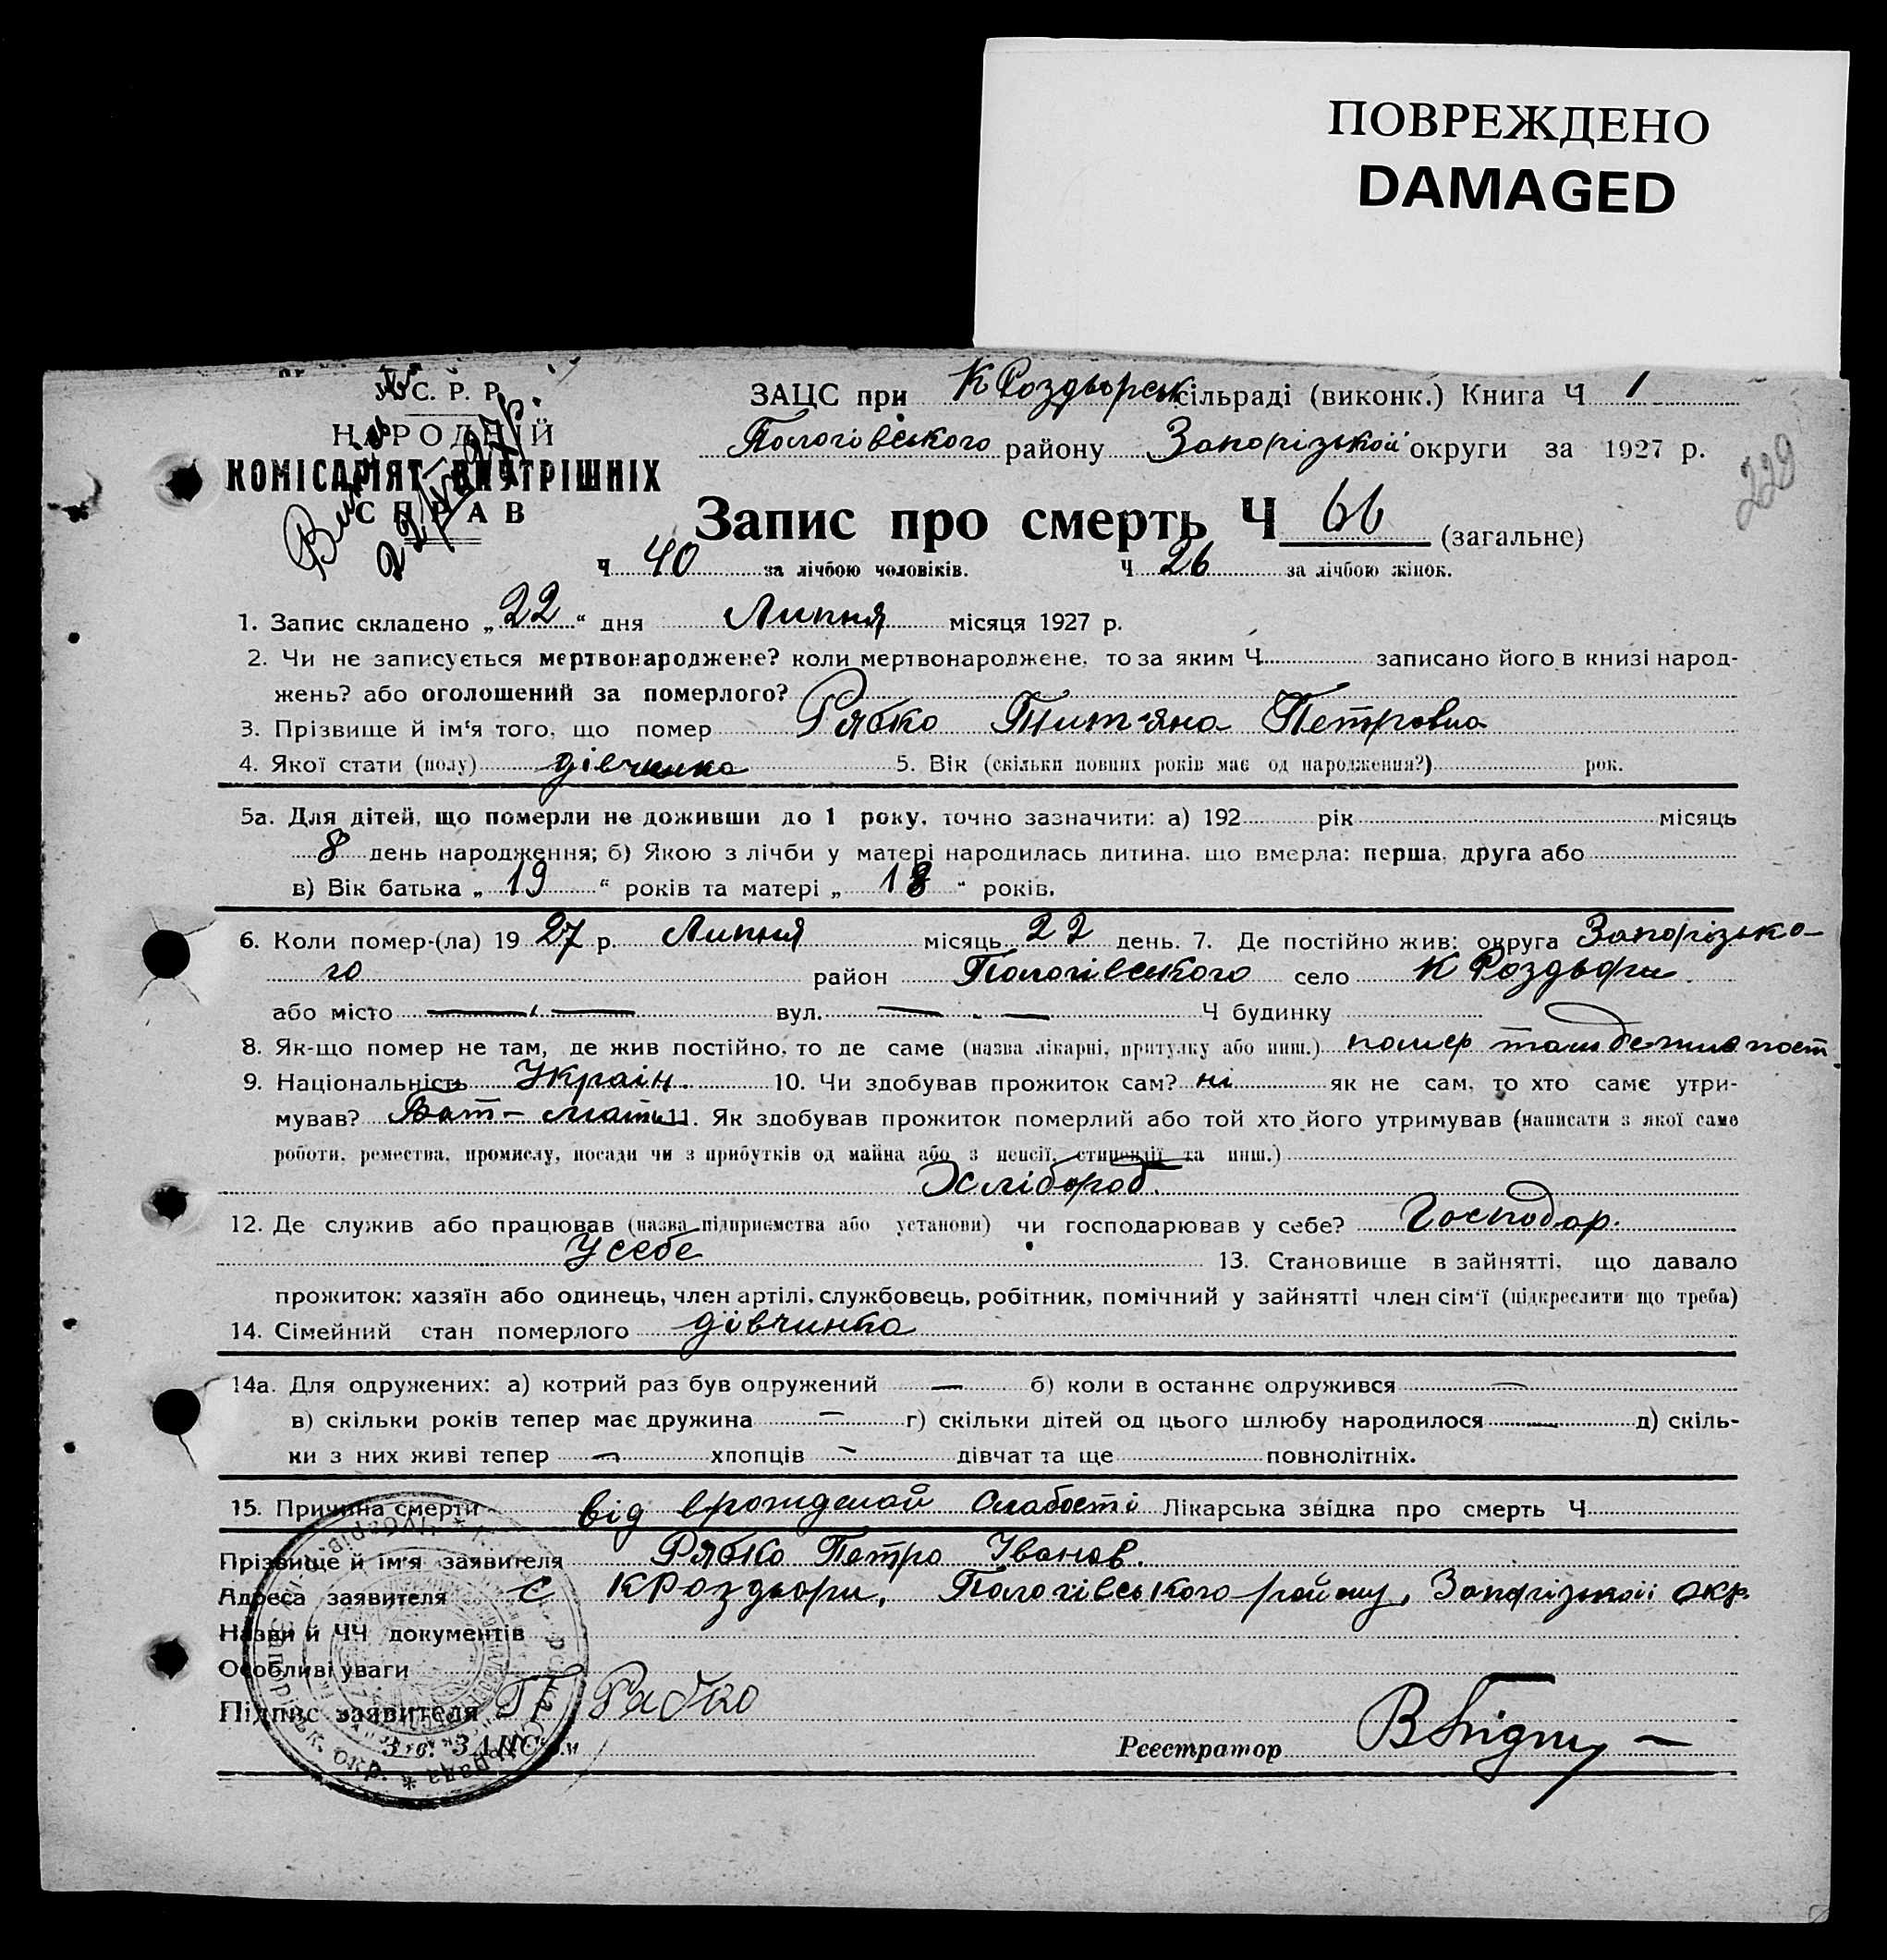 ПОВРЕЖДЕНО
DAMAGED
У. С. Р. Р.
НАРОДНІЙ
КОМІСАРІЯТ ВНУТРІШНІХ
СПРАВ
ЗАЦС при КРоздорськ сільраді (виконк.) Книга Ч 1
Пологівського району Запорізькой округи за 1927 р.
229
Запис про смерть Ч 66 (загальне)
Ч 40 за лічбою чоловіків. Ч 26 за лічбою жінок.
1. Запис складено „22“ дня Липня місяця 1927 р.
2. Чи не записується мертвонароджене? коли мертвонароджене, то за яким Ч записано його в книзі народ-
жень? або оголошений за померлого?
3. Прізвище й ім‘я того, що помер Рябко Тит‘яна Петровна
4. Якої стати (полу) дівчинка 5. Вік (скільки повних років має од народження?) рок.
5а. Для дітей, що померли не доживши до 1 року, точно зазначити: а) 192 рік місяць
8 день народження; б) Якою з лічби у матері народилась дитина, що вмерла: перша, друга або
в) Вік батька „19“ років та матері „18“ років.
6. Коли помер-(ла) 1927 р. Липня місяць 22 день. 7. Де постійно жив: округа Запорізько-
го район Пологівського село К Роздори
або місто — вул. — Ч будинку
8. Як-що помер не там, де жив постійно, то де саме (назва лікарні, притулку або инш.) помер там де жив пост
9. Національність Україн. 10. Чи здобував прожиток сам? ні як не сам, то хто саме утри-
мував? Бат- мати 11. Як здобував прожиток померлий або той хто його утримував (написати з якої саме
роботи, ремества, промислу, посади чи з прибутків од майна або з пенсії, стипендії та инш.)
Хлібороб.
12. Де служив або працював (назва підприємства або установи) чи господарював у себе? Господар.
У себе 13. Становище в зайнятті, що давало
прожиток: хазяїн або одинець, член артілі, службовець, робітник, помічний у зайнятті член сім‘ї (підкреслити що треба)
14. Сімейний стан померлого дівчинка
14а. Для одружених: а) котрий раз був одружений — б) коли в останнє одружився —
в) скільки років тепер має дружина — г) скільки дітей од цього шлюбу народилося — д) скіль-
ки з них живі тепер — хлопців — дівчат та ще повнолітніх.
15. Причина смерти від врожденой слабості Лікарська звідка про смерть Ч
Прізвище й ім‘я заявителя Рябко Петро Іванов.
Адреса заявителя с КРоздори, Пологівського району, Запорізькоі окр.
Назви й ЧЧ документів
Особливі уваги
Підпис заявителя П Рабко
Зав. ЗАЦС‘ом Реєстратор